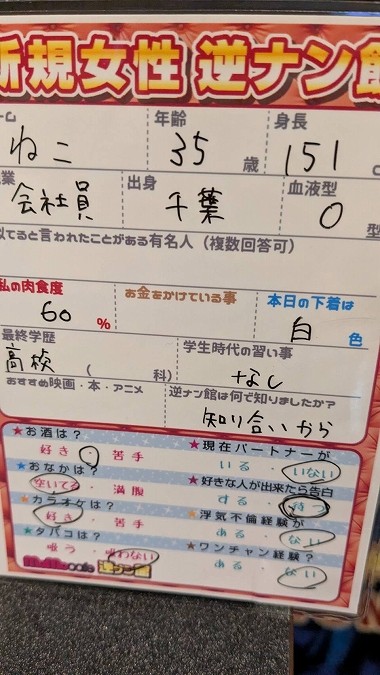 新規女性 逆ナン館
ーム 年齢 身長
ねこ 35 歳 151 c
業 出身 血液型
会社員 千葉 O 型
似てると言われたことがある有名人（複数回答可）
私の肉食度 お金をかけている事 本日の下着は
60 % 白 色
最終学歴 学生時代の習い事
高校 ( 科) なし
おすすめ映画・本・アニメ 逆ナン館は何で知りましたか？
知り合いから
★お酒は？ ★現在パートナーが
好き ・ 苦手 いる ・ いない
★おなかは？ ★好きな人が出来たら告白
空いてる ・ 満腹 する ・ 待つ
★カラオケは？ ★浮気不倫経験が
好き ・ 苦手 ある ・ ない
★タバコは？ ★ワンチャン経験？
吸う ・ 吸わない ある ・ ない
cafe 逆ナン館